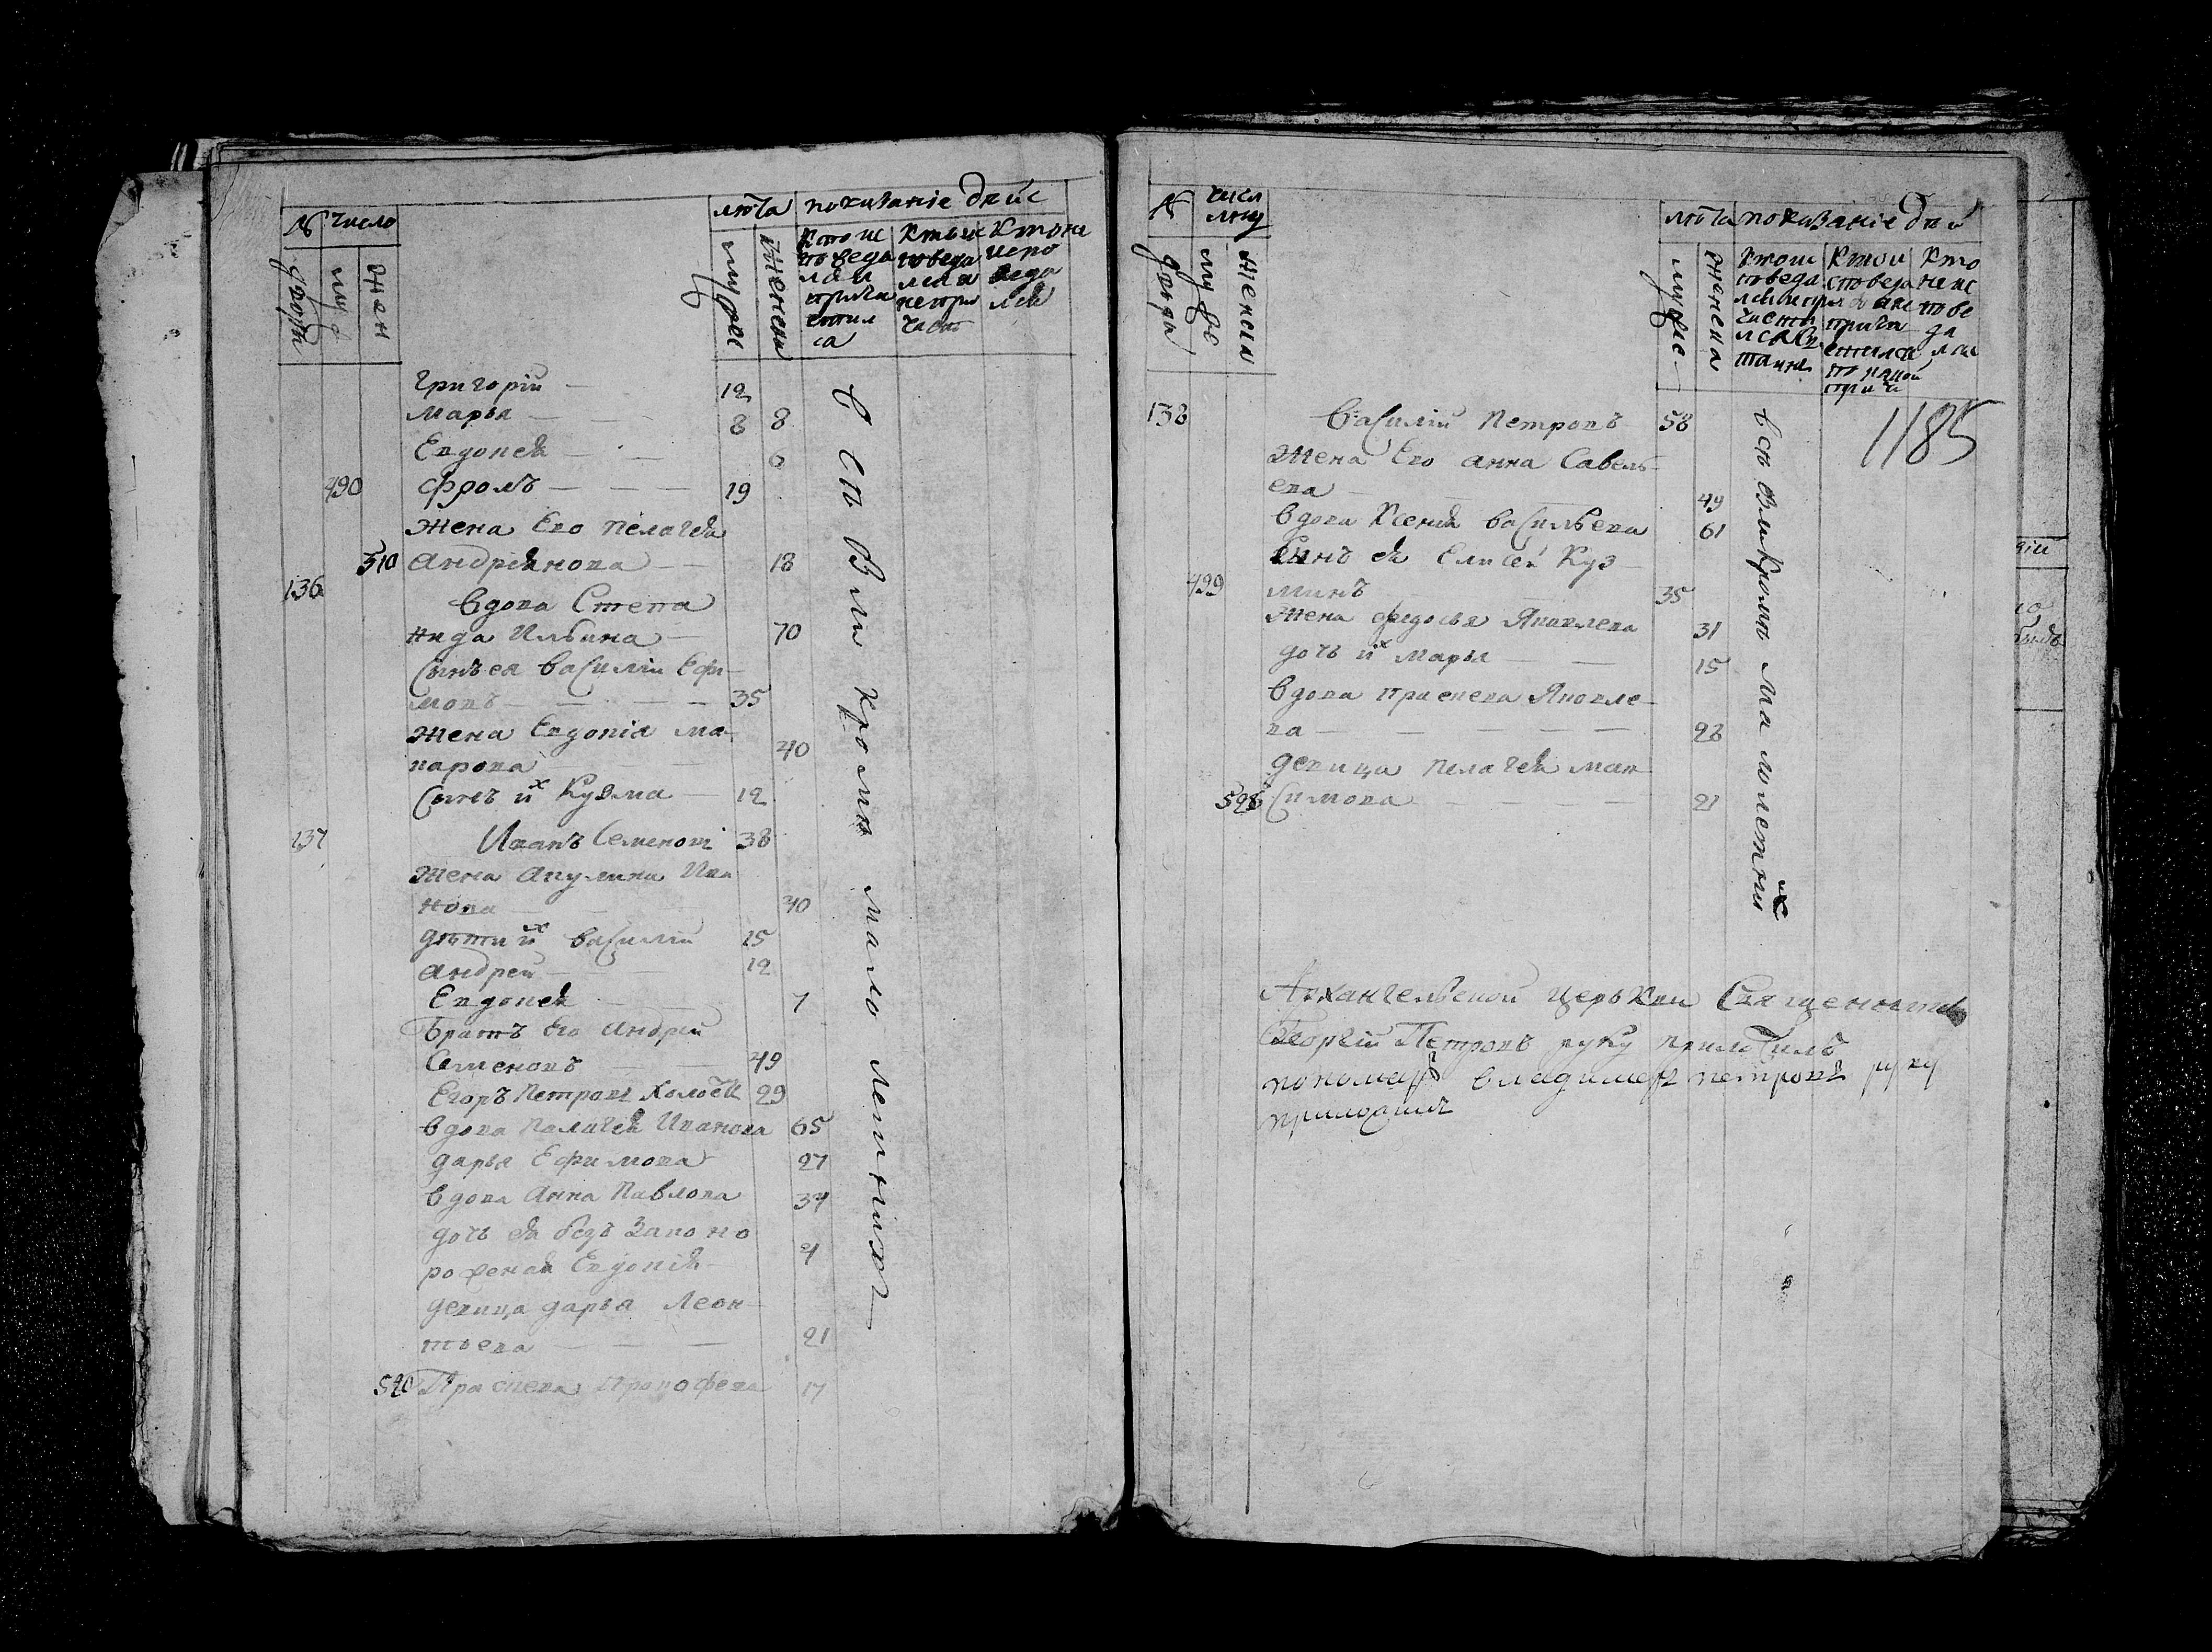 № число
лѣта показаніе дѣйс
дворы
муж
жен
мужес
женска
Кто ис
поведа
лся и
прича
стил
ся
Кто ис
поведа
лся а
не при
част
Кто не
испо
веда
лся
Григорій — 12
Марья — 8 8
Евдокея — 6
490 Фролъ — 19
жена Ево Пелагея
510 Андреянова — 18
136 вдова Степа
нида Ильина — 70
Сынъ ея Василій Ефи-
мовъ — 35
жена Евдокія Ма-
карова 40
Сынъ их Кузма — 12
137 Иванъ Семеновъ 38
жена Акулина Ива
нова 40
дѣти их Василій 15
Андрей — 12
Евдокея 7
Братъ Его Андрей
Семеновъ 49
Егоръ Петровъ 29
вдова Палагея Иванова 65
дарья Ефимова 27
вдова Анна Павлова 34
дочь ея без Законо
рожденая Евдокія 4
девица дарья Леон-
тьева — 21
520 Прасковя Прокофева 17
всѣ были кромѣ малолетнихъ
№ числ
люд
лѣта показаніе дѣй
дворы
муже
женска
мужес
женска
Кто ис
поведа
лся и при
части
лся
Кто и
споведа
лся а не
прича
стился
по какой
причи
Кто
не ис
пове
да
лся
138 Василій Петровъ 58
1185
жена Ево Анна Савель-
ева 49
вдова Ксения Васильева 61
Сынъ ея Елисей Куз-
499 минъ 35
жена Федосья Яковлева 31
дочь их Марья — 15
вдова Прасковя Яковле-
ва — 28
девица Пелагея Мак
528 симова — 21
всѣ были кромѣ малолетних
Архангельской церькви Священникъ
Георгій Петровъ руку приложилъ
пономарь Владимеръ Петровъ руку
приложилъ